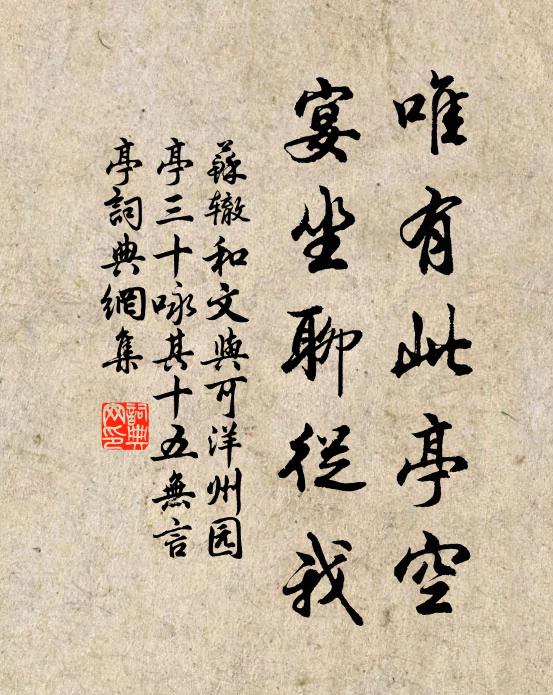 唯有此亭空
宴坐聊從我
蘇辙和文與可洋州园
亭三十咏其十五無言
亭詞典網集
詞典
网印